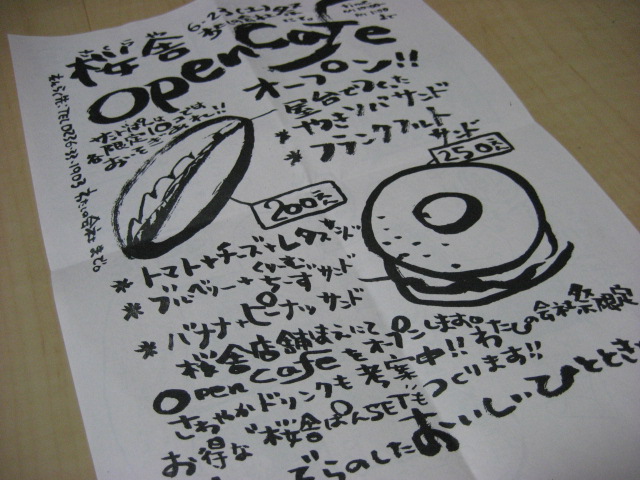 さくら
桜舎
6.23(土)
Open Cafe
オープン!!
屋台でつくった
*やきソバサンド
*フランクフルト
サンド
サンド
各限定10コでは
お
TEL0226-33-1903
わたの会社まで。
200えん
250えん
*トマト+チーズ+レタスサンド
*ブルーベリー+くりーむちーずサンド
*バナナ+ピーナッツサンド
桜舎店舗まえにて
Open cafeをオープンします。わたびの会社祭限定
さわやかドリンクも考案中!!
お得な桜舎ぱんSETもつくります!!
でらのしたおいしいひととき